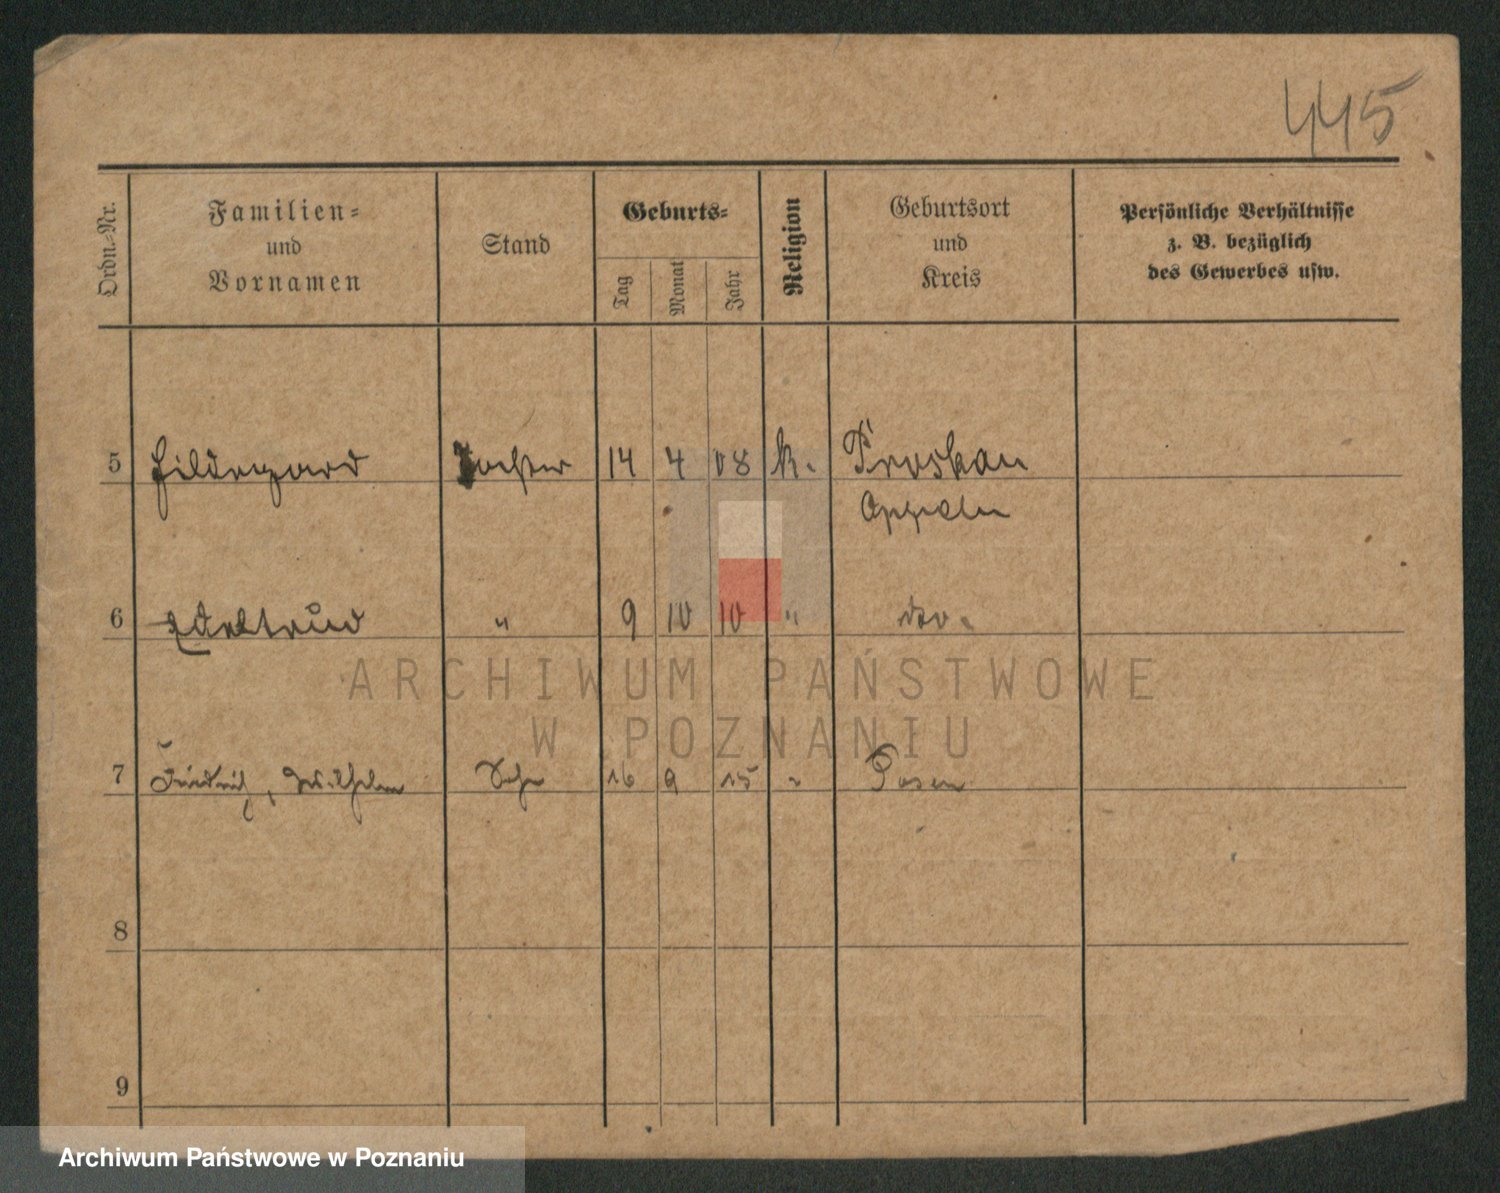 445
Ordn=Nr.
Familien=
und
Vornamen
Stand
Geburts=
Tag
Monat
Jahr
Religion
Geburtsort
und
Kreis
Persönliche Verhältnisse
z. B. bezüglich
des Gewerbes usw.
5 Hildegard Tochter 14 4 08 k. Proskau
Oppeln
6 Edeltrud " 9 10 10 " do.
ARCHIWUM PAŃSTWOWE
W POZNANIU
7 Friedrich, Wilhelm Sohn 16 9 15 " Posen
8
9
Archiwum Państwowe w Poznaniu